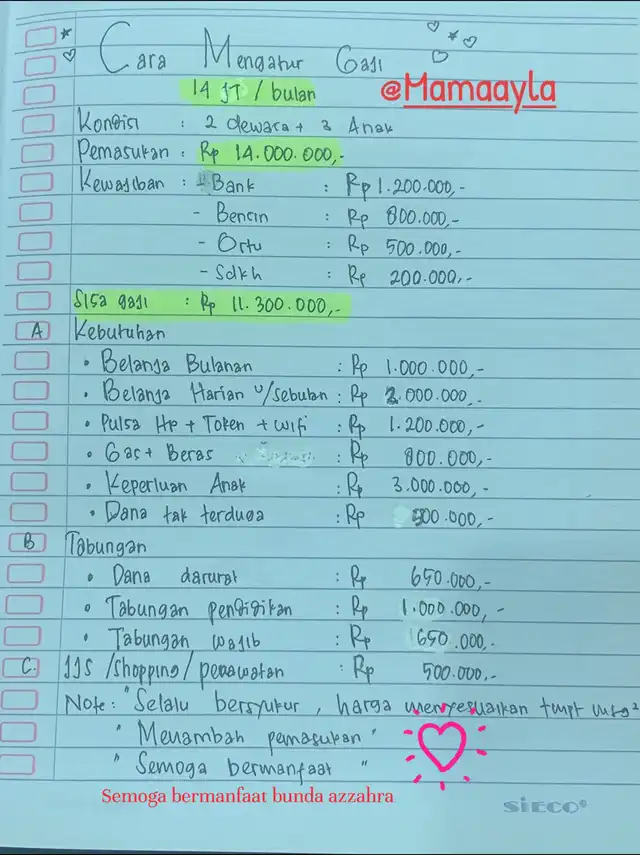 Cara Mengatur Gaji
14 JT / bulan
@Mamaayla
Kondisi : 2 dewasa + 3 Anak
Pemasukan : Rp 14.000.000,-
Kewajiban : - Bank : Rp 1.200.000,-
- Bensin : Rp 800.000,-
- Ortu : Rp 500.000,-
- Sdkh : Rp 200.000,-
Sisa gaji : Rp 11.300.000,-
A Kebutuhan
• Belanja Bulanan : Rp 1.000.000,-
• Belanja Harian u/sebulan : Rp 2.000.000,-
• Pulsa Hp + Token + wifi : Rp 1.200.000,-
• Gas + Beras : Rp 800.000,-
• Keperluan Anak : Rp 3.000.000,-
• Dana tak terduga : Rp 500.000,-
B Tabungan
• Dana darurat : Rp 650.000,-
• Tabungan pendidikan : Rp 1.000.000,-
• Tabungan wajib : Rp 650.000,-
C. JJS /shopping/ perawatan : Rp 500.000,-
Note : "Selalu bersyukur, harga menyesuaikan tmpt mrg²
" Menambah pemasukan "
" Semoga bermanfaat "
Semoga bermanfaat bunda azzahra
SiECO